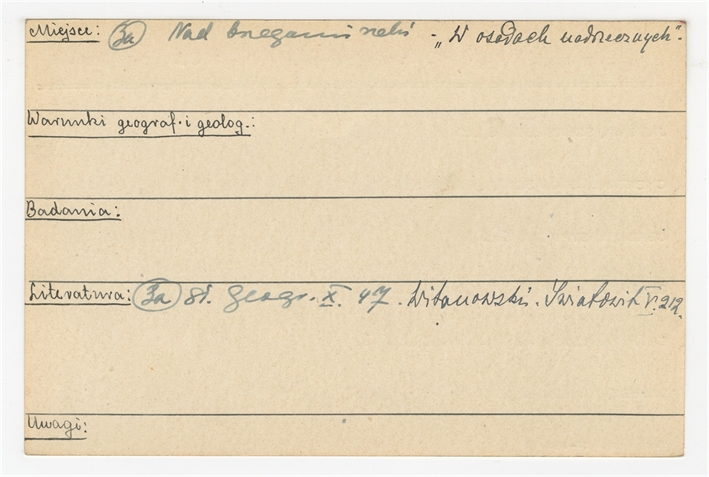 Miejsce: 3a Nad brzegami rzeki - „W osadach nadrzecznych".
Warunki geograf. i geolog.:
Badania:
Literatura: 3a Sł. geogr. X. 47. Witanowski. Światowit V. 212.
Uwagi: